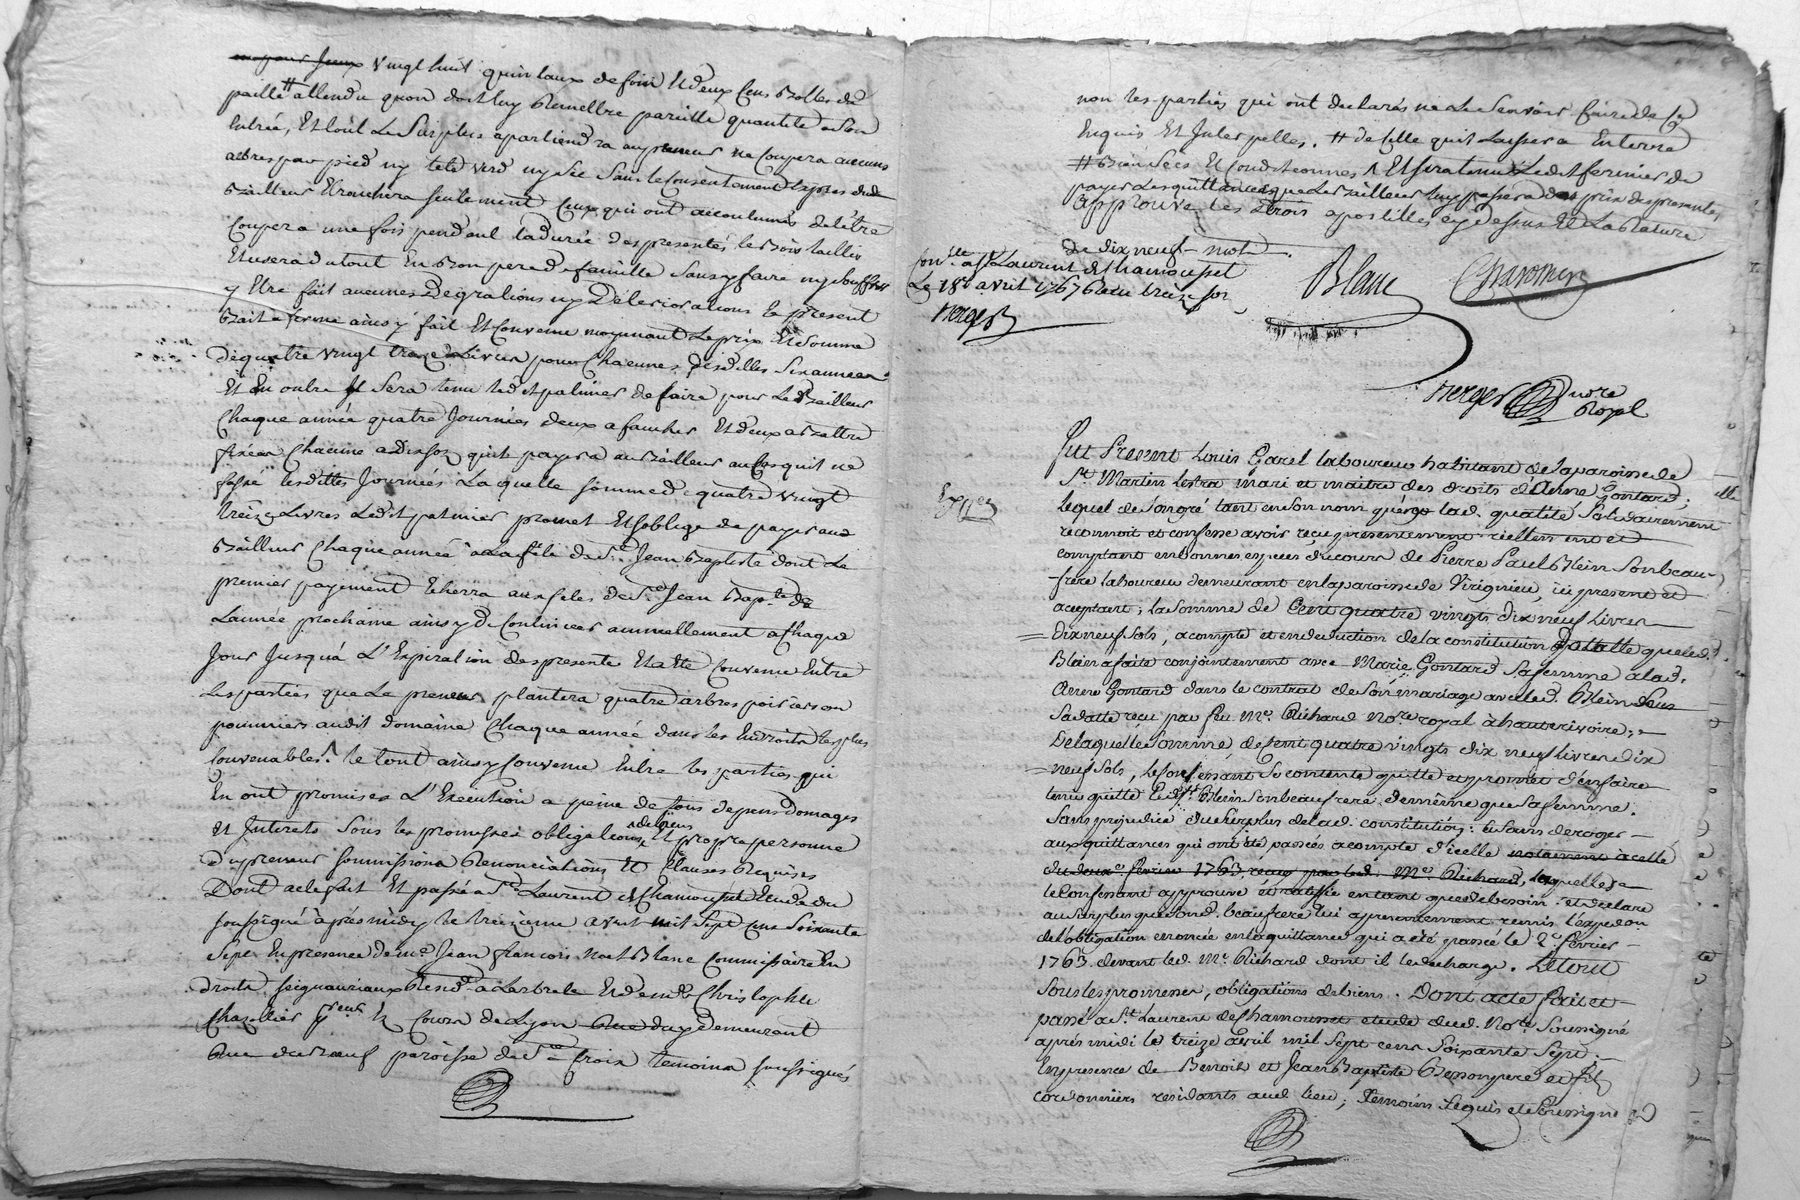 vingt huit quintaux de foin Et deux Cens bottes de
paille # attendu quon doit luy Remettre pareille quantité a Son
Entrée, Et tout Le Surplus apartiendra au preneur ne Coupera aucuns
arbres par pied ny tete verd ny sec Sans le Consentement Expres dudt
Bailleur Ebranchera seulement Ceux qui ont accoutumés de létre
Coupera une fois pendant la durée des presentes les bois taillis
Et usera du tout En bon pere de famille Sans y faire ny souffrir
y Etre fait aucunes Degrations ny Deteriorations le present
Bail a ferme ainsy fait Et Convenu moyennant Le prix Et Somme
de quatre vingt treze Livres pour Chacunes desdittes Six années
Et En outre Il Sera tenu ledt palmier de faire pour Le Bailleur
Chaque année quatre Journées deux a faucher Et deux a Battre
fixées Chacune a dix sols quil payera au Bailleur au Cas quil ne
fasse lesdittes Journées La quelle somme de quatre vingt
treize Livres Ledt palmier promet Et Soblige de payer aud
Bailleur Chaque année a La féte de St Jean Baptiste dont Le
premier payement Echerra aux fetes de St Jean Bapte de
Lannée prochaine ainsy De Continuer annuellement a Chaque
Jour Jusqu'à L'Expiration des presentes Et a Eté Convenu Entre
Les parties que Le preneur plantera quatre arbres poiriers ou
pommiers audit domaine Chaque année dans les Endroits les plus
Convenables. le tout ainsy Convenu Entre les parties qui
En ont promises L'Execution a peine de tous depens Domages
et Interets Sous les promesses obligations de biens Et propre personne
Du preneur Soumissions Renonciations Et Clauses Requises
Dont acte fait Et passé a St Laurent de Chamousset Etude du
Soussigné aprés midy le treizieme avril mil Sept Cens Soixante
Sept En presence de me Jean francois Noel Blanc Commissaire En
droits seigneuriaux Resid. a Larbrele Et de me Christophle
Chazottier En Cours de Lyon y Demeurant
Rue du Bœuf paroisse de Ste Croix temoins soussignés
non les parties qui ont declarés ne le Scavoir faire de Ce
Enquis Et Interpelles. # de Celle quil Laissera En terre
# Biensées Et Conditionnes Λ Et Sera tenu Ledit fermier de
payer les quittances que Le Bailleur luy passera du prix des presentes
approuvé Les trois apostilles cy dessus Et La Rature
de dix neuf mots.
Conlle a St Laurent de Chamousset
Le 18e avril 1767 Reçu treize sols
Verger
Blanc
Verger Nore
Royal
Fut Present Louis Garel laboureur habitant de la paroisse de
St Martin Lestra mari et maitre des droits d'Anne Gontard;
Lequel de son gré tant en son nom qu'en lad. qualité Solidairement
reconnoit et confesse avoir reçu presentement reellement et
comptant en bonnes especes du cours de Pierre Paul Blein Son beau-
frère laboureur demeurant en la paroisse de Virignieu, ici present et
acceptant; la Somme de Cent quatre vingts dix neuf Livres
dix neuf Sols, a compte et en deduction de la constitution Dotalle que led.
Blein a faite conjointement avec Marie Gontard Sa femme a lad.
Anne Gontard dans le contrat de Son mariage avec led. Blein Sous
Sa datte reçu par feu Me. Richard Nore royal à hauterivoire;
De laquelle Somme de Cent quatre vingts dix neuf Livres dix
neuf Sols, Le Confessant Se contente quitte et promet d'en faire
tenir quitte Led. Blein Son beau frere, de même que Sa femme.
Sans prejudice du Surplus de lad. constitution: Et Sans deroger
aux quittances qui ont été passées a compte d'icelle notamment à celle
du deux février 1763, reçue par led. Me Richard, laquelle
le Confessant approuve et ratiffie en tant que de besoin: et declare
au Surplus que Sond. beau frere lui a presentement remis l'expedon
de l'obligation enoncée en la quittance qui a été passée le 2e février
1763 devant led. Me Richard dont il le decharge. Le tout
Sous les promesses, obligations de biens. Dont acte fait et
passé a St Laurent de Chamousset etude dud. Nore Soussigné
aprés midi le treize avril mil Sept cens Soixante Sept.
En presence de Benoit et Jean Baptiste pere et fils
cordonniers residants aud. lieu; Témoins requis et Soussignés